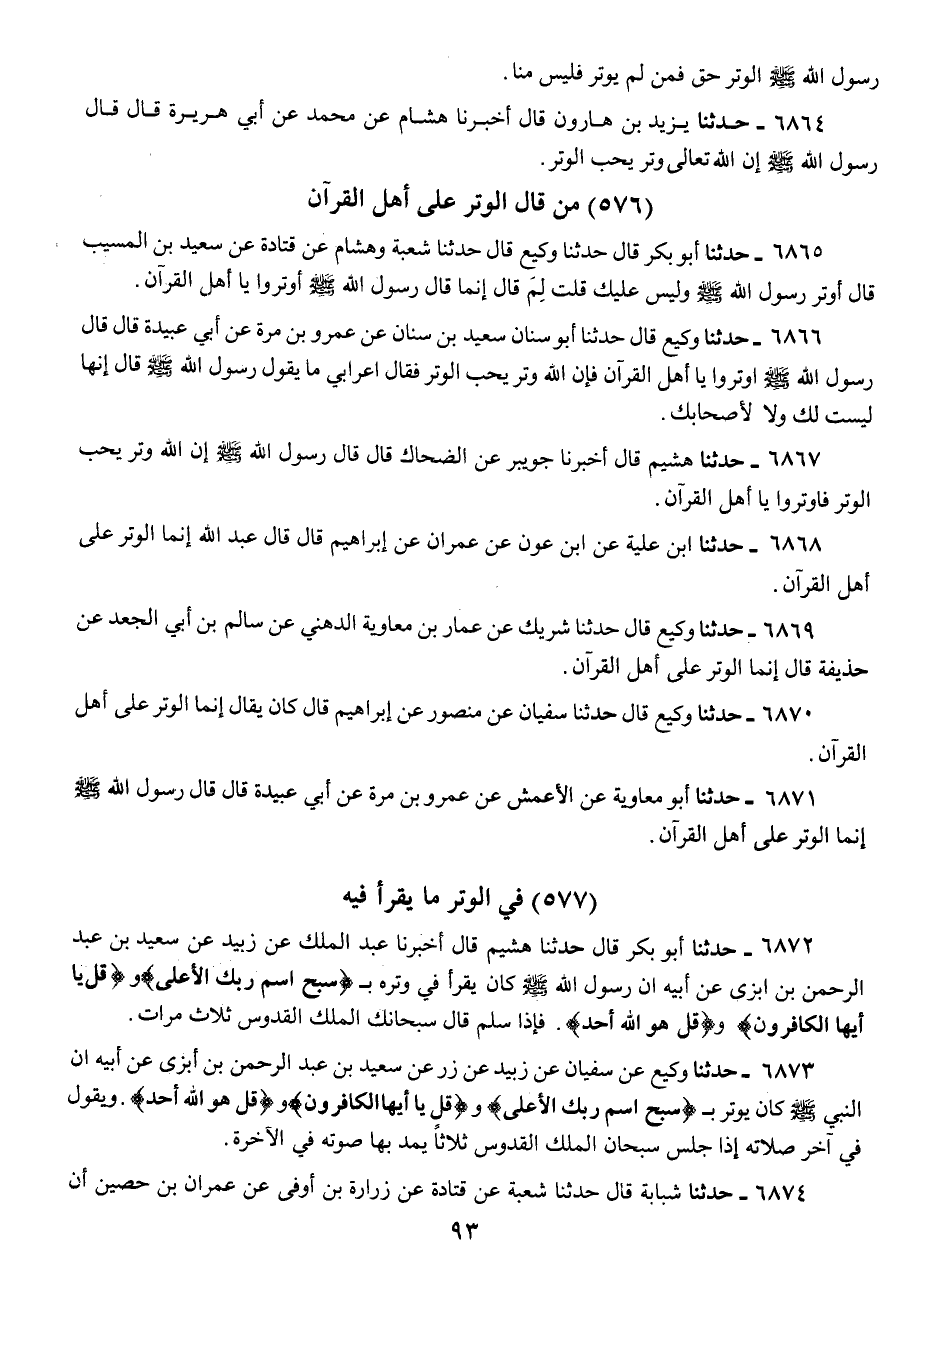 رسول الله ﷺ الوتر حق فمن لم يوتر فليس منا.
٦٨٦٤ ـ حدثنا يزيد بن هارون قال أخبرنا هشام عن محمد عن أبي هريرة قال قال
رسول الله ﷺ إن الله تعالى وتر يحب الوتر.
(٥٧٦) من قال الوتر على أهل القرآن
٦٨٦٥ ـ حدثنا أبو بكر قال حدثنا وكيع قال حدثنا شعبة وهشام عن قتادة عن سعيد بن المسيب
قال أوتر رسول الله ﷺ وليس عليك قلت لِمَ قال إنما قال رسول الله ﷺ أوتروا يا أهل القرآن.
٦٨٦٦ ـ حدثنا وكيع قال حدثنا أبو سنان سعيد بن سنان عن عمرو بن مرة عن أبي عبيدة قال قال
رسول الله ﷺ اوتروا يا أهل القرآن فإن الله وتر يحب الوتر فقال اعرابي ما يقول رسول الله ﷺ قال إنها
ليست لك ولا لأصحابك.
٦٨٦٧ ـ حدثنا هشيم قال أخبرنا جويبر عن الضحاك قال قال رسول الله ﷺ إن الله وتر يحب
الوتر فاوتروا يا أهل القرآن.
٦٨٦٨ ـ حدثنا ابن علية عن ابن عون عن عمران عن إبراهيم قال قال عبد الله إنما الوتر على
أهل القرآن.
٦٨٦٩ ـ حدثنا وكيع قال حدثنا شريك عن عمار بن معاوية الدهني عن سالم بن أبي الجعد عن
حذيفة قال إنما الوتر على أهل القرآن.
٦٨٧٠ ـ حدثنا وكيع قال حدثنا سفيان عن منصور عن إبراهيم قال كان يقال إنما الوتر على أهل
القرآن.
٦٨٧١ ـ حدثنا أبو معاوية عن الأعمش عن عمرو بن مرة عن أبي عبيدة قال قال رسول الله ﷺ
إنما الوتر على أهل القرآن.
(٥٧٧) في الوتر ما يقرأ فيه
٦٨٧٢ ـ حدثنا أبو بكر قال حدثنا هشيم قال أخبرنا عبد الملك عن زبيد عن سعيد بن عبد
الرحمن بن ابزى عن أبيه ان رسول الله ﷺ كان يقرأ في وتره بـ ﴿سبح اسم ربك الأعلى﴾ و ﴿قل يا
أيها الكافرون﴾ و﴿قل هو الله أحد﴾. فإذا سلم قال سبحانك الملك القدوس ثلاث مرات.
٦٨٧٣ ـ حدثنا وكيع عن سفيان عن زبيد عن زر عن سعيد بن عبد الرحمن بن أبزى عن أبيه ان
النبي ﷺ كان يوتر بـ ﴿سبح اسم ربك الأعلى﴾ و ﴿قل يا أيها الكافرون﴾ و﴿قل هو الله أحد﴾. ويقول
في آخر صلاته إذا جلس سبحان الملك القدوس ثلاثاً يمد بها صوته في الآخرة.
٦٨٧٤ ـ حدثنا شبابة قال حدثنا شعبة عن قتادة عن زرارة بن أوفى عن عمران بن حصين أن
٩٣